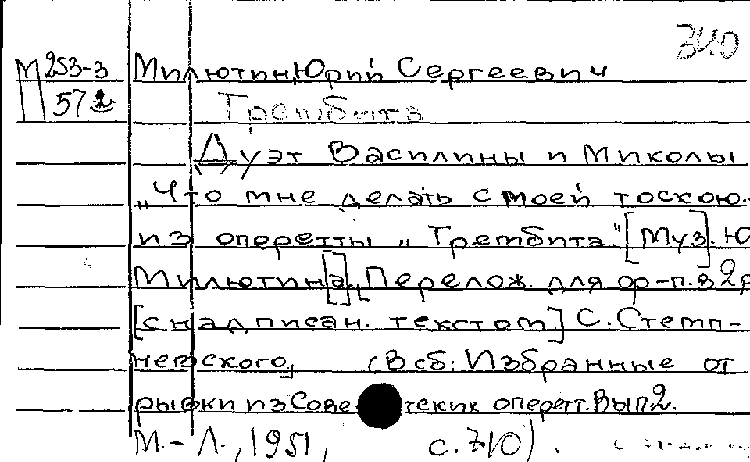 М 253-3 Милютин, Юрий Сергеевич
572 Трембита
Дуэт Василины и Миколы
„Что мне делать с моей тоскою.
из оперетты „Трембита" [Муз]. Ю
Милютин[а]. [Перелож. для ф-п. в 2 р
[с надписан. текстом] С. Стемп-
невского, (В сб: Избранные от
рывки из Сове тских оперетт. Вып 2.
М.-Л., 1951, с.